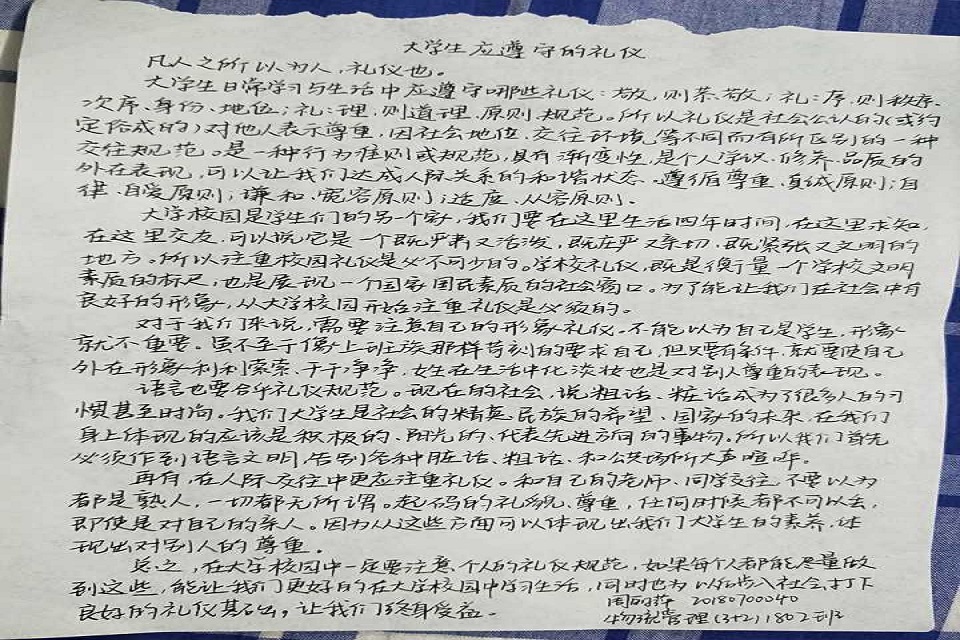 大学生应遵守的礼仪
凡人之所以为人，礼仪也。
大学生日常学习与生活中应遵守哪些礼仪：敬，则恭敬；礼：序，则秩序、
次序、身份、地位；礼：理，则道理、原则、规范。所以礼仪是社会公认的（或约
定俗成的）对他人表示尊重，因社会地位、交往环境等不同而有所区别的一种
交往规范。是一种行为准则或规范，具有渐变性，是个人学识、修养、品质的
外在表现，可以让我们达成人际关系的和谐状态。遵循尊重、真诚原则；自
律、自爱原则；谦和、宽容原则；适度、从容原则。
大学校园是学生们的另一个家，我们要在这里生活四年时间，在这里求知，
在这里交友，可以说它是一个既严肃又活泼，既庄严又亲切，既紧张又文明的
地方。所以注重校园礼仪是必不可少的。学校礼仪，既是衡量一个学校文明
素质的标尺，也是展现一个国家国民素质的社会窗口。为了能让我们在社会中有
良好的形象，从大学校园开始注重礼仪是必须的。
对于我们来说，需要注意自己的形象礼仪。不能以为自己是学生，形象
就不重要。虽不至于像上班族那样苛刻的要求自己，但只要有条件，就要使自己
外在形象利利索索、干干净净，女生在生活中化淡妆也是对别人尊重的表现。
语言也要合乎礼仪规范。现在的社会，说粗话、脏话成为了很多人的习
惯甚至时尚。我们大学生是社会的精英、民族的希望、国家的未来，在我们
身上体现的应该是积极的、阳光的、代表先进方向的事物。所以我们首先
必须作到语言文明，告别各种脏话、粗话、和公共场所大声喧哗。
再有，在人际交往中更应注重礼仪。和自己的老师、同学交往，不要以为
都是熟人，一切都无所谓。起码的礼貌、尊重，任何时候都不可以会，
即使是对自己的亲人。因为从这些方面可以体现出我们大学生的素养，体
现出对别人的尊重。
总之，在大学校园中一定要注意个人的礼仪规范，如果每个人都能尽量做
到这些，能让我们更好的在大学校园中学习生活，同时也为以后步入社会打下
良好的礼仪基础，让我们终身受益。
周丽萍 20180700040
物流管理(3+2)1802班